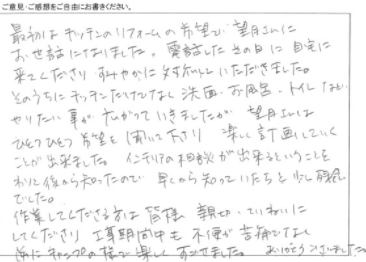 ご意見・ご感想をご自由にお書きください。
最初はキッチンのリフォームの希望で望月さんに
お世話になりました。電話したその日に自宅に
来てくださり すみやかに対応していただきました。
そのうちにキッチンだけでなく 洗面・お風呂・トイレなど
やりたい事が広がっていきましたが 望月さんは
ひとつひとつ希望を聞いて下さり 楽しく計画していく
ことが出来ました。インテリアの相談が出来るということを
わりと後から知ったので 早くから知っていたらと少し残念
でした。
作業してくださる方は皆様 親切・ていねいに
してくださり 工事期間中も不便が苦痛でなく
逆にキャンプの様で楽しくすごせました。ありがとうございました。